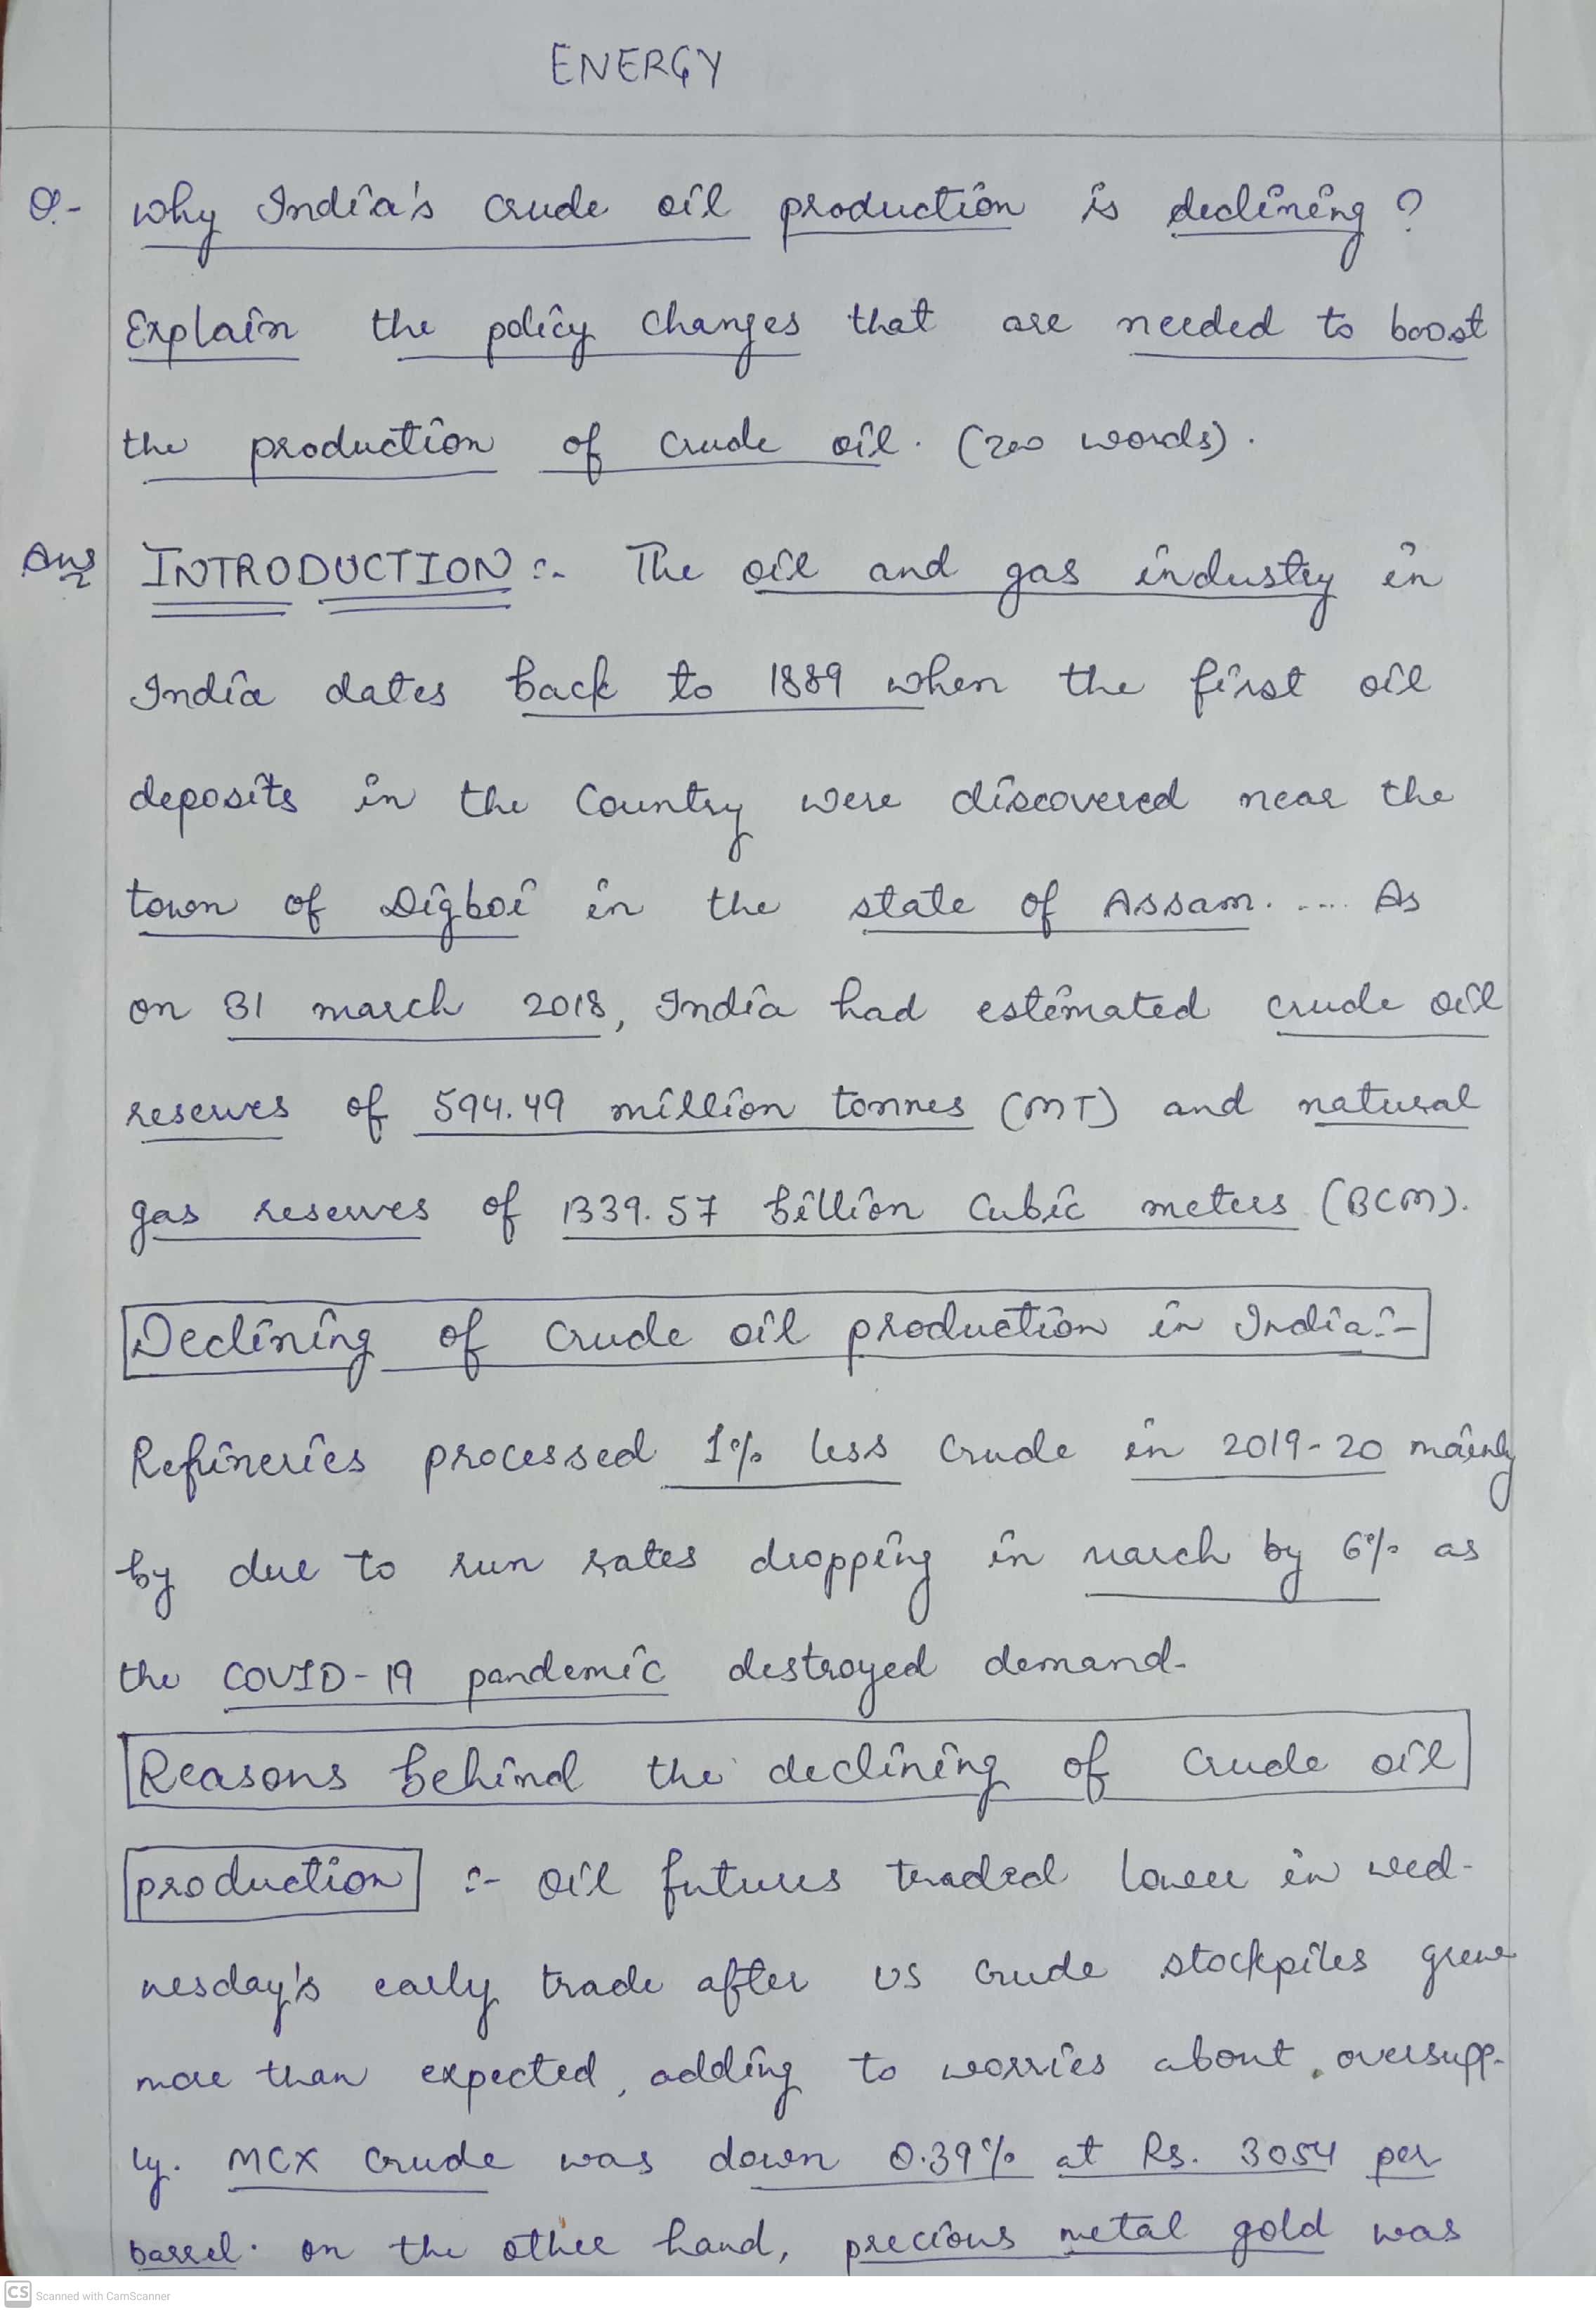 ENERGY
Q.- why India's crude oil production is declining ?
Explain the policy changes that are needed to boost
the production of crude oil. (200 words).
Ans INTRODUCTION :- The oil and gas industry in
India dates back to 1889 when the first oil
deposits in the Country were discovered near the
town of Digboi in the state of Assam. .... As
on 31 march 2018, India had estimated crude oil
reserves of 594.49 million tonnes (MT) and natural
gas reserves of 1339.57 billion Cubic meters (BCM).
Declining of crude oil production in India:-
Refineries processed 1% less crude in 2019-20 mainly
by due to run rates dropping in march by 6% as
the COVID-19 pandemic destroyed demand.
Reasons behind the declining of crude oil
production :- Oil futures traded lower in wed-
nesday's early trade after US crude stockpiles grew
more than expected, adding to worries about oversupp-
ly. MCX crude was down 0.39% at Rs. 3054 per
barrel. on the other hand, precious metal gold was
CS Scanned with CamScanner